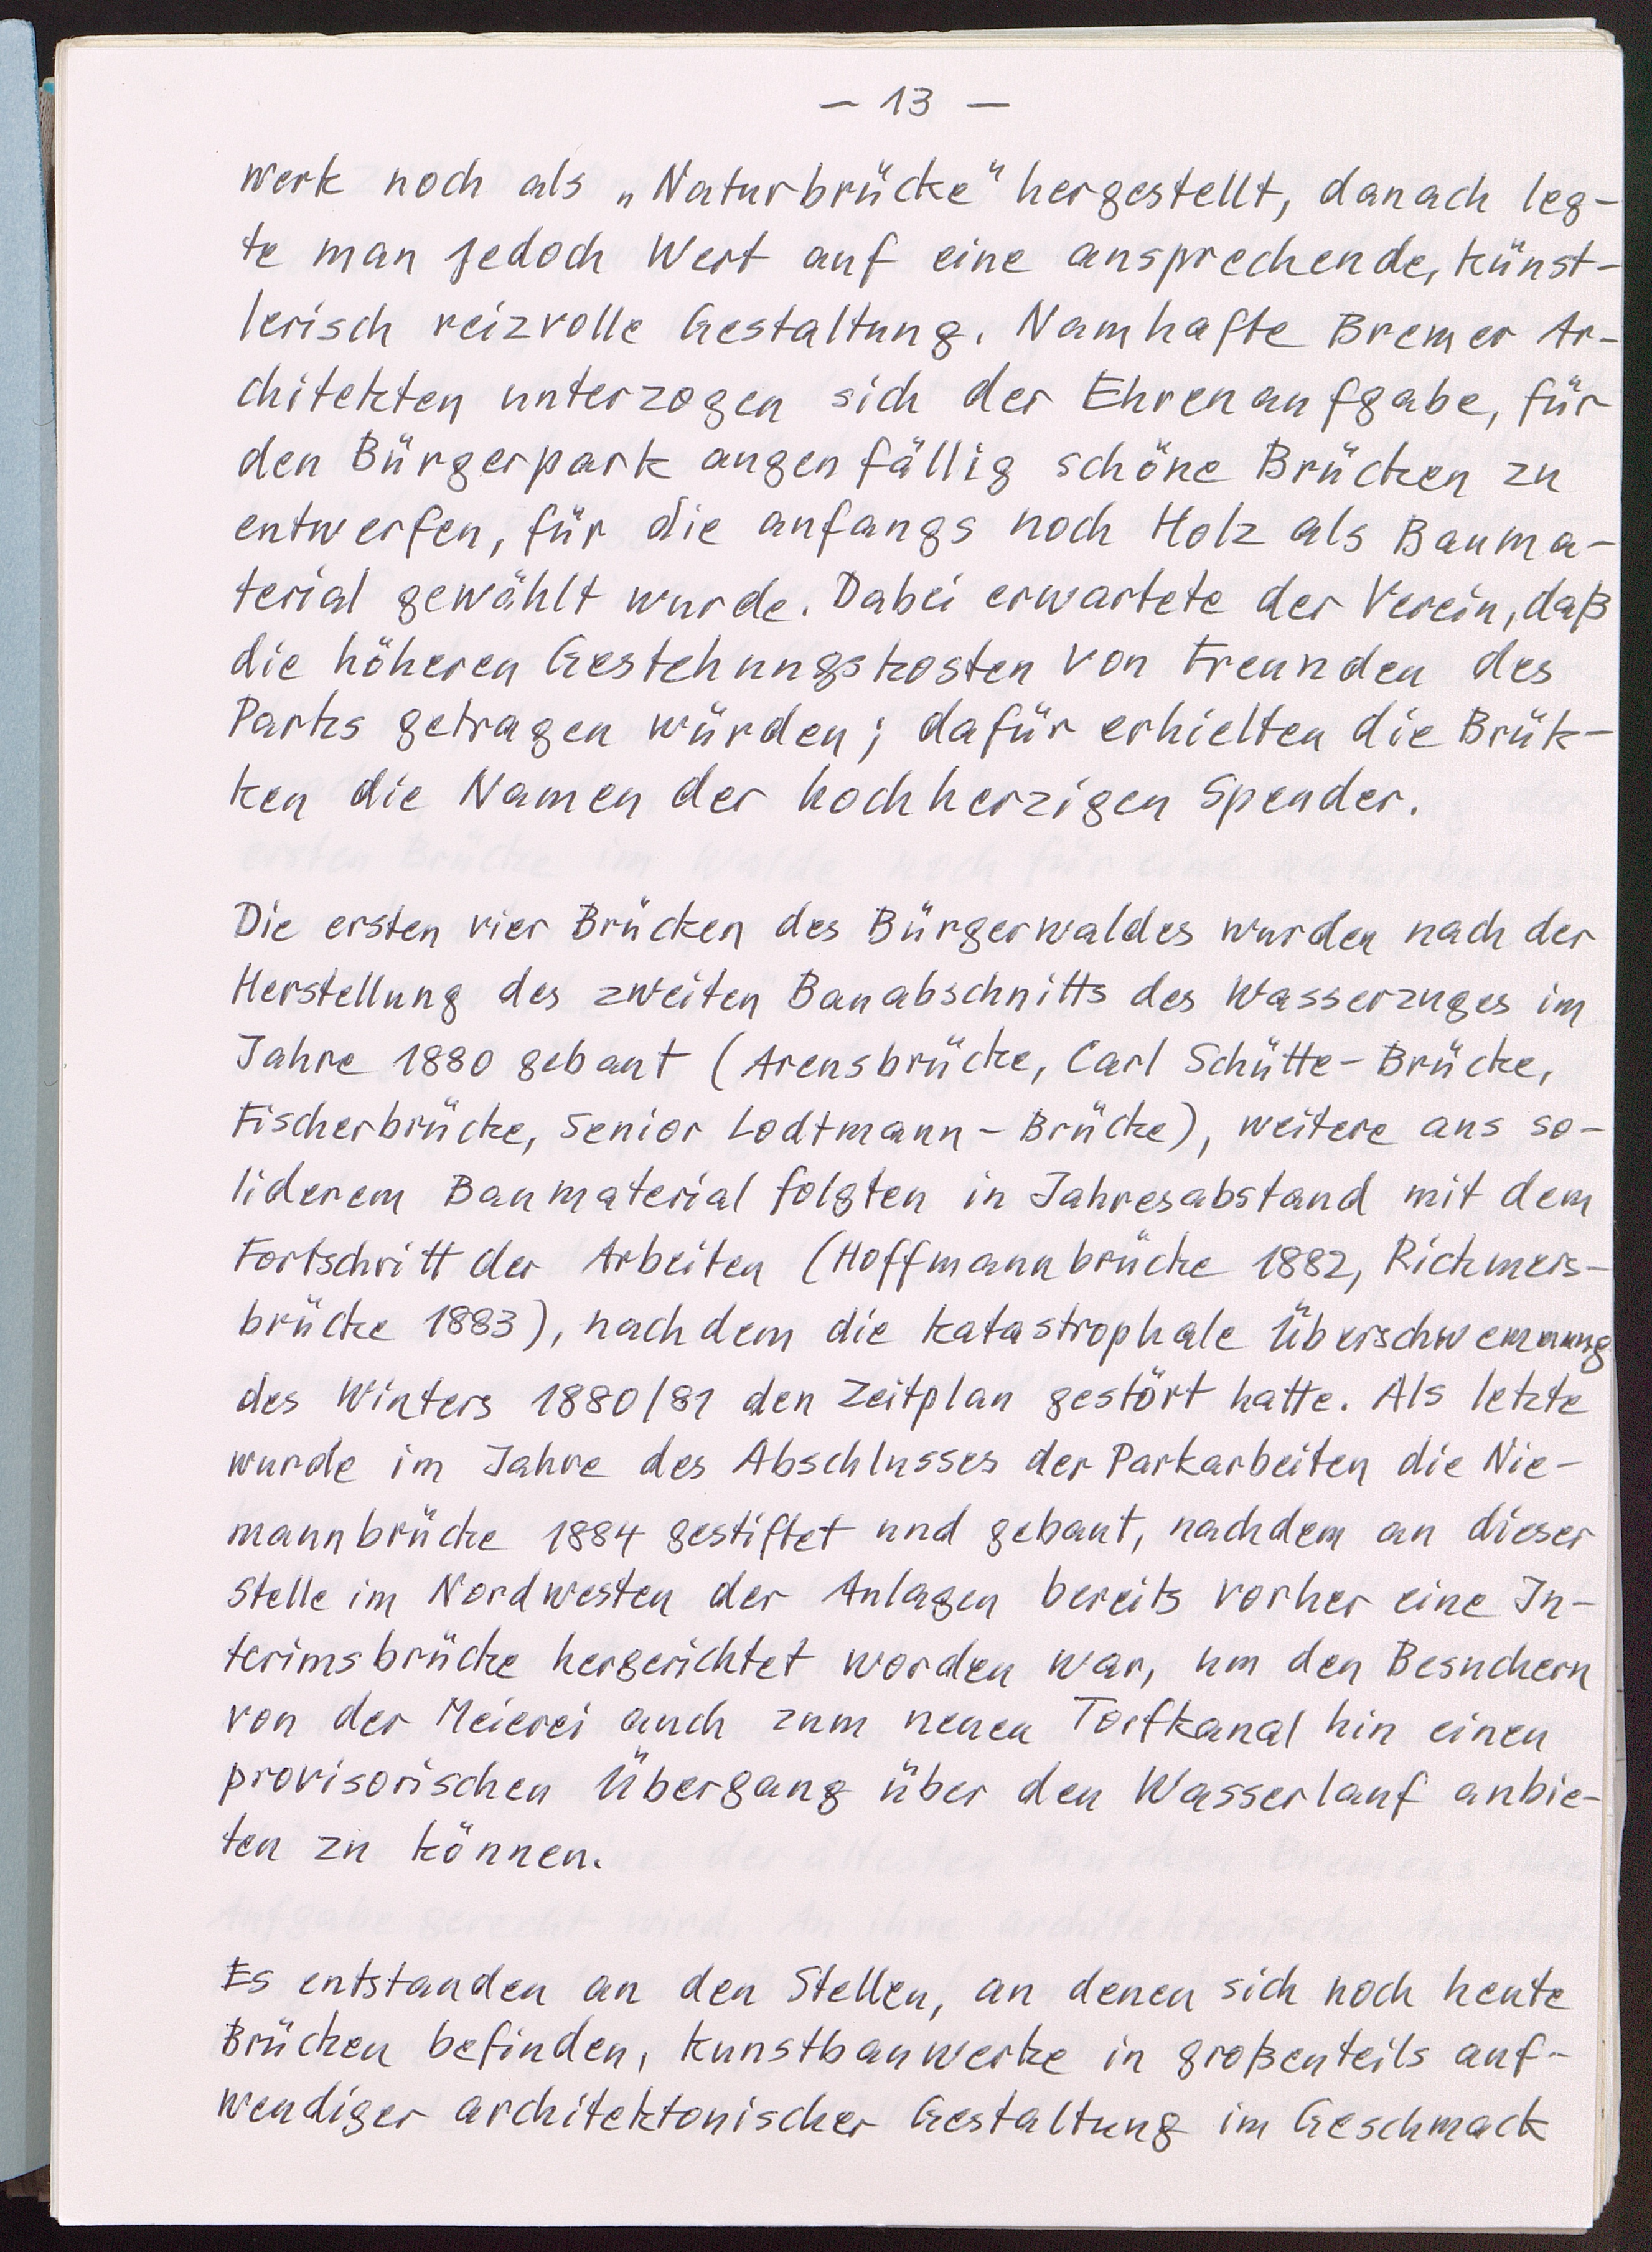 — 13 —
werk noch als „Naturbrücke" hergestellt, danach leg-
te man jedoch Wert auf eine ansprechende, künst-
lerisch reizvolle Gestaltung. Namhafte Bremer Ar-
chitekten unterzogen sich der Ehrenaufgabe, für
den Bürgerpark augenfällig schöne Brücken zu
entwerfen, für die anfangs noch Holz als Bauma-
terial gewählt wurde. Dabei erwartete der Verein, daß
die höheren Gestehungskosten von Freunden des
Parks getragen würden; dafür erhielten die Brük-
ken die Namen der hochherzigen Spender.
Die ersten vier Brücken des Bürgerwaldes wurden nach der
Herstellung des zweiten Bauabschnitts des Wasserzuges im
Jahre 1880 gebaut (Arensbrücke, Carl Schütte-Brücke,
Fischerbrücke, Senior Lodtmann-Brücke), weitere aus so-
liderem Baumaterial folgten in Jahresabstand mit dem
Fortschritt der Arbeiten (Hoffmannbrücke 1882, Rickmers-
brücke 1883), nachdem die katastrophale Überschwemmung
des Winters 1880/81 den Zeitplan gestört hatte. Als letzte
wurde im Jahre des Abschlusses der Parkarbeiten die Nie-
mannbrücke 1884 gestiftet und gebaut, nachdem an dieser
Stelle im Nordwesten der Anlagen bereits vorher eine In-
terimsbrücke hergerichtet worden war, um den Besuchern
von der Meierei auch zum neuen Torfkanal hin einen
provisorischen Übergang über den Wasserlauf anbie-
ten zu können.
Es entstanden an den Stellen, an denen sich noch heute
Brücken befinden, Kunstbauwerke in großenteils auf-
wendiger architektonischer Gestaltung im Geschmack